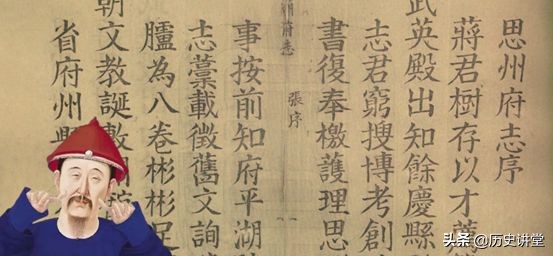 思州府志序
蔣君樹存以才
武英殿出知餘慶縣
志君窮搜博考創
書復奉檄護理思
府志
張序
事按前知府平湖
志藁載徵舊文詢
臚為八卷彬彬足
朝文教誕敷
省府州
头条 @历史讲堂